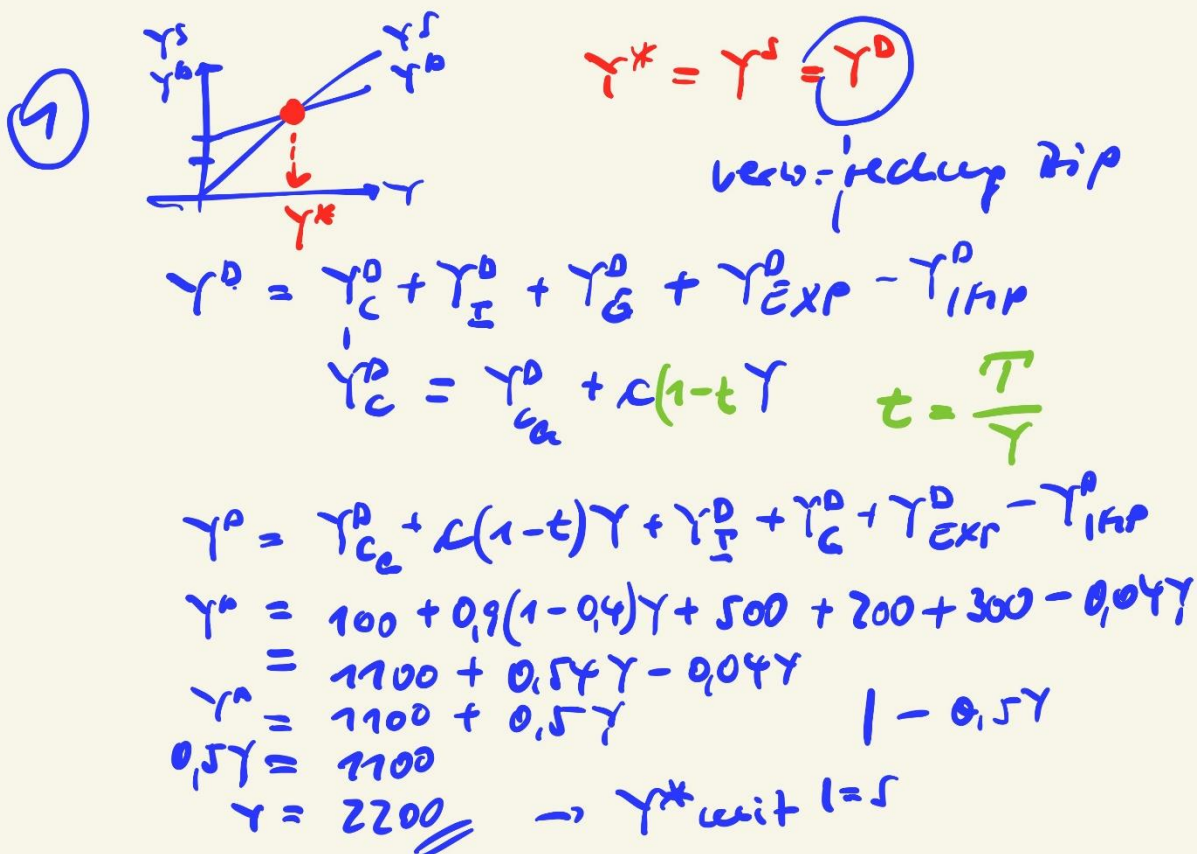 1
Y^S
Y^D
Y^S
Y^D
Y
Y*
Y* = Y^S = Y^D
Y^D = Y^D_C + Y^D_I + Y^D_G + Y^D_EXP - Y^D_IMP
Y^D_C = Y^D_Ca + c(1-t Y
t = T/Y
Y^D = Y^D_Ca + c(1-t)Y + Y^D_I + Y^D_G + Y^D_EXP - Y^D_IMP
Y^D = 100 + 0,9(1-0,4)Y + 500 + 200 + 300 - 0,04Y
= 1100 + 0,54Y - 0,04Y
Y^D = 1100 + 0,5Y | - 0,5Y
0,5Y = 1100
Y = 2200 → Y* mit I=S